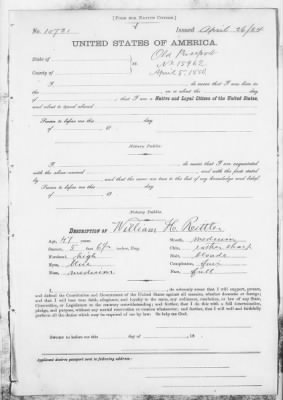 [FORM FOR NATIVE CITIZEN.]
No. 10721 Issued April 26/84
UNITED STATES OF AMERICA.
STATE OF Old Passport
COUNTY OF No 15962
April 5, 1880
I , do swear that I was born in the
on or about the day of
, that I am a Native and Loyal Citizen of the United States,
and about to travel abroad
Sworn to before me this day
of 18
Notary Public.
I , do swear that I am acquainted
with the above named and with the facts stated
by and that the same are true to the best of my knowledge and belief.
Sworn to before me this day
of 18
Notary Public.
DESCRIPTION OF William H.
Age, 47 years. Mouth, medium
Stature, 5 feet 6½ inches, Eng. Chin, rather sharp
Forehead, high Hair, blonde
Eyes, blue Complexion, fair
Nose, medium Face, full
I , do solemnly swear that I will support, protect,
and defend the Constitution and Government of the United States against all enemies, whether domestic or foreign;
and that I will bear true faith, allegiance, and loyalty to the same, any ordinance, resolution, or law of any State,
Convention, or Legislature to the contrary notwithstanding; and further, that I do this with a full determination,
pledge, and purpose, without any mental reservation or evasion whatsoever; and further, that I will well and faithfully
perform all the duties which may be required of me by law: So help me God.
Sworn to before me this day of 18
Applicant desires passport sent to following address: